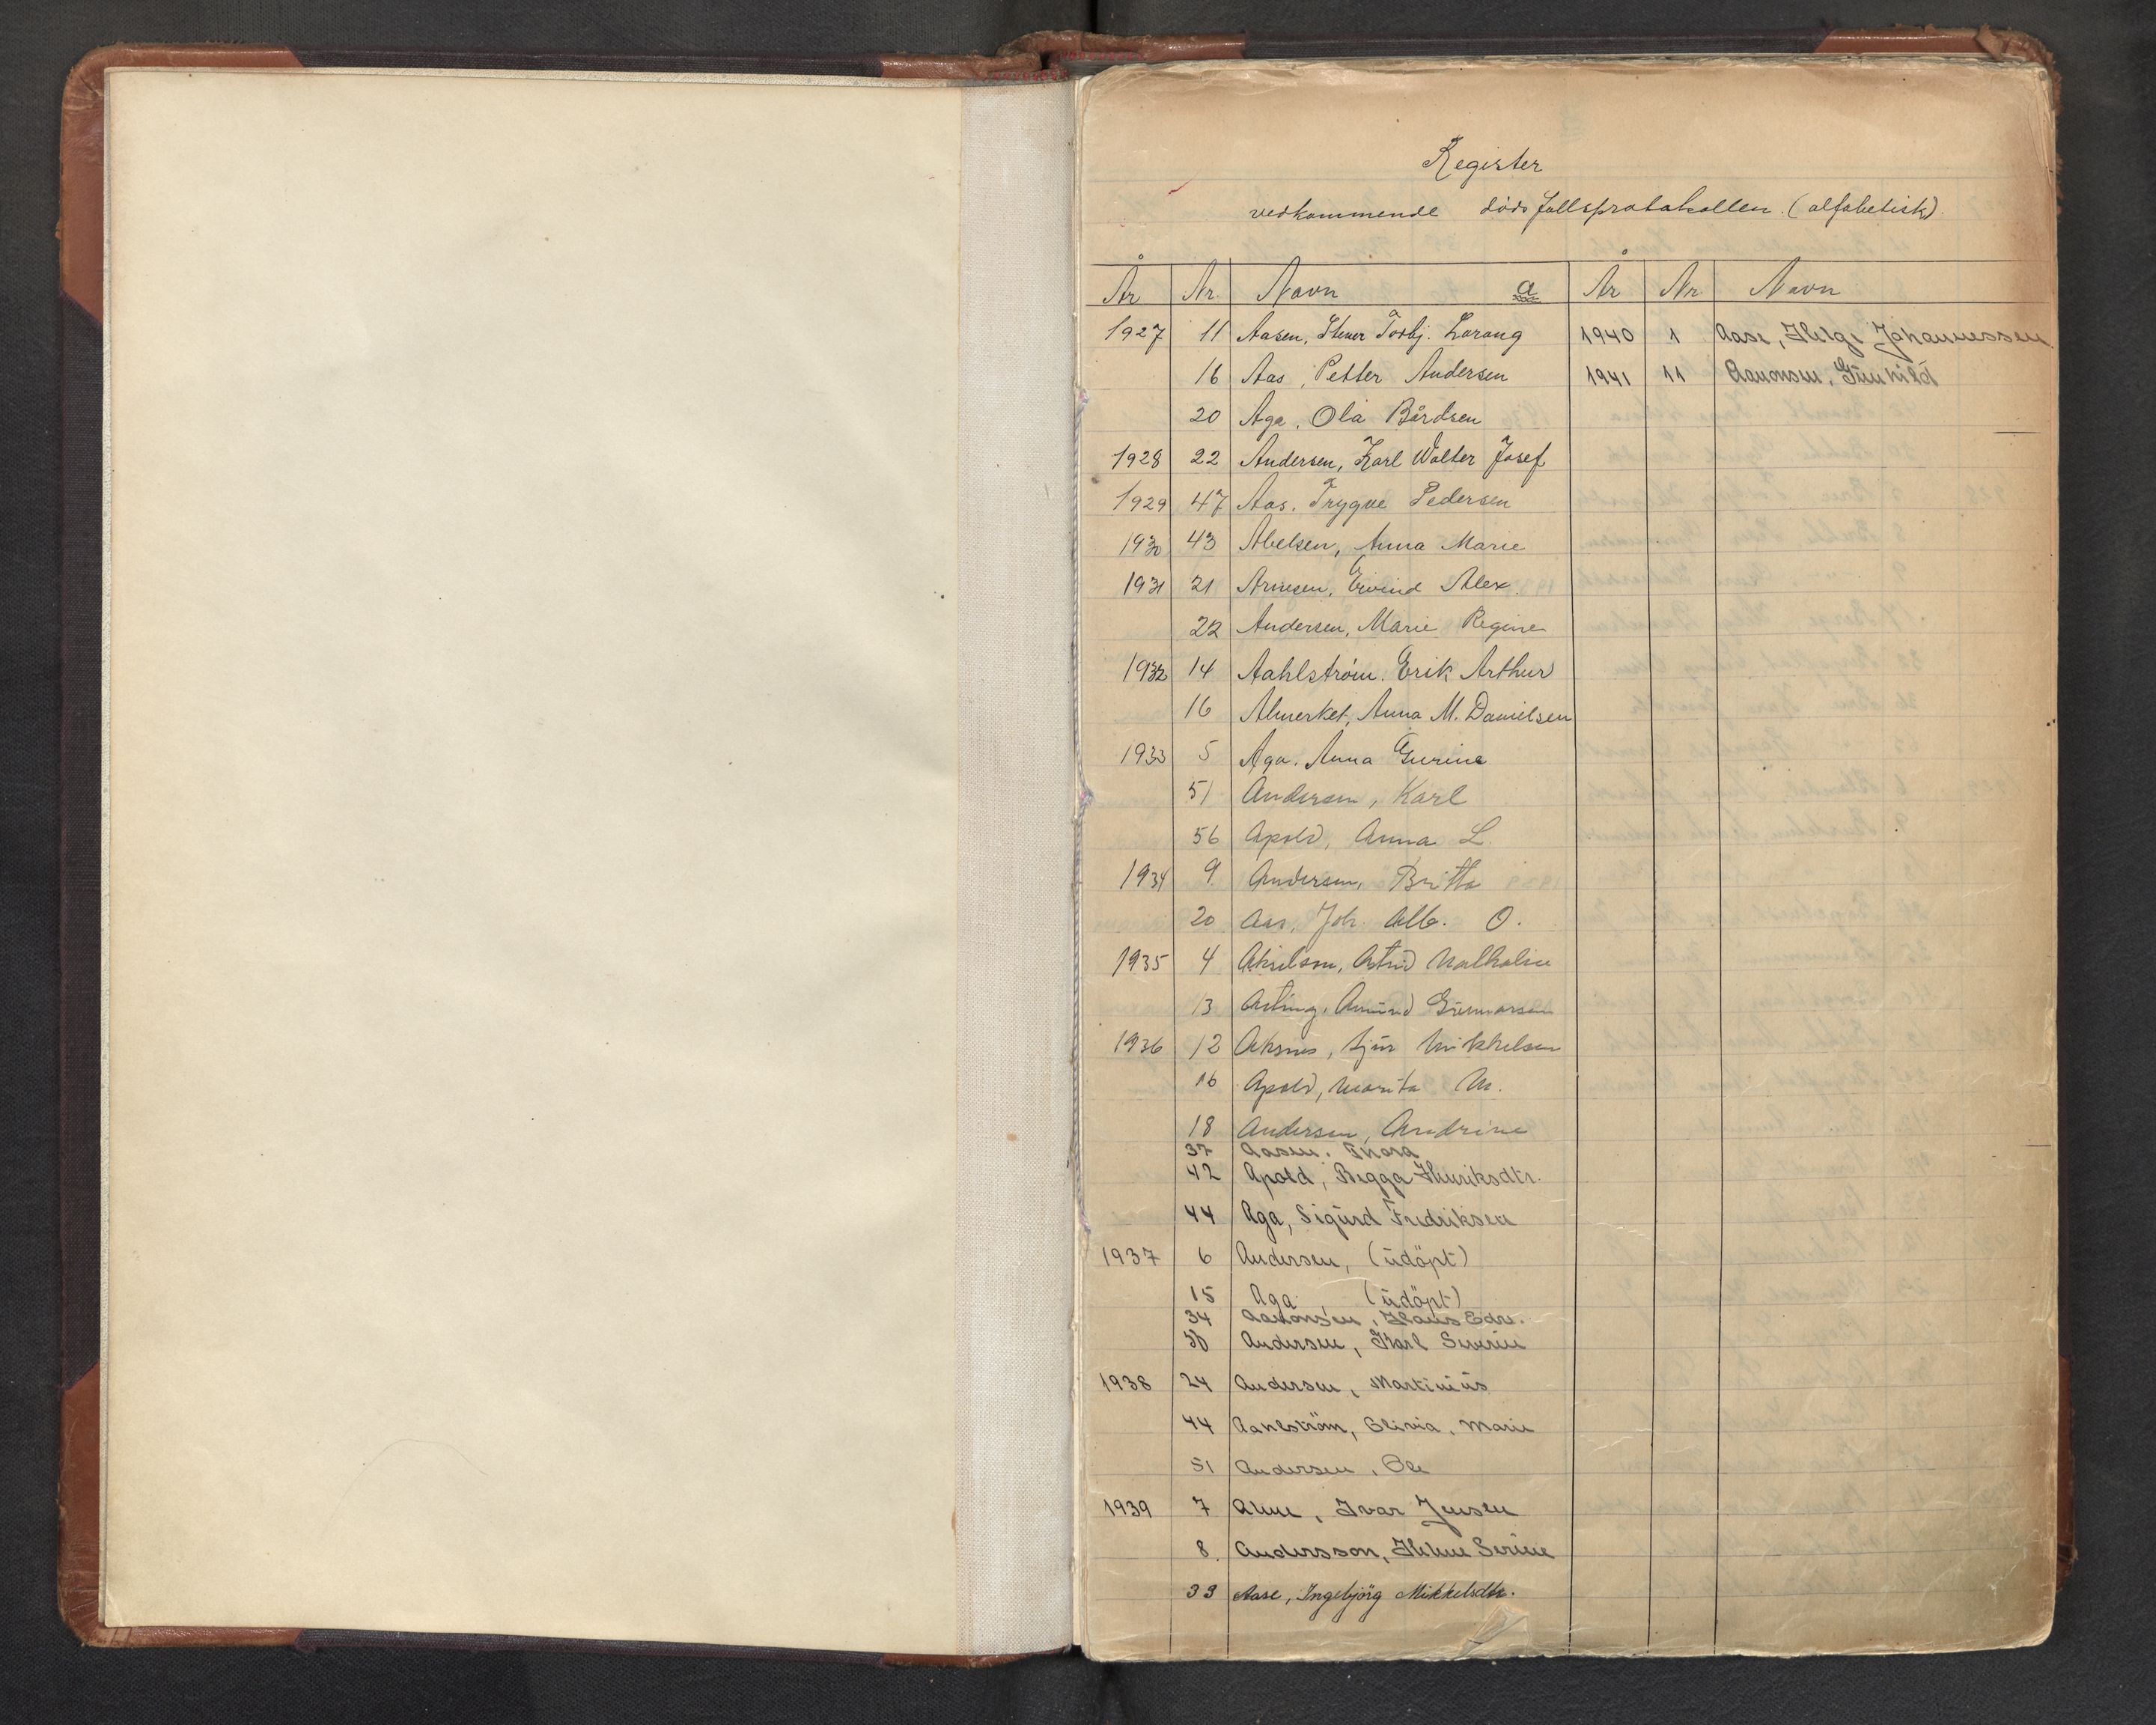 Register
vedkommende dödsfallsprotokollen. (alfabetisk).
År Nr. Navn a År Nr Navn
1927 11 Aasen, Torbj. 1940 1 Aase, Helge Johannessen
16 Aas, Petter Andersen 1941 11 Aaronsen, Gunhild
20 Aga, Ola Bårdsen
1928 22 Andersen, Karl Walter Josef
1929 47 Aas. Trygve Pedersen
1930 43 Abelsen, Anna Marie
1931 21 Arnesen, Eivind Alex.
22 Andersen, Marie Regine
1932 14 Aahlström. Erik Arthur
16 Anna M. Danielsen
1933 5 Aga. Anna Gurine
51 Andersen, Karl
56 Apold, Anna L.
1934 9 Andersen, Britta
20 Aas, Joh. Alb. O.
1935 4 Astrid
13 Amund Gunnarsen
1936 12 Aksnes, Sjur Mikkelsen
16 Apold, Marita M.
18 Andersen, Andrine
37 Aasen. Thora
42 Apold, Begga Henriksdtr.
44 Aga, Sigurd Fredriksen
1937 6 Andersen, (udöpt)
15 Aga (udöpt)
34 Aaronsen, Hans Edv.
Andersen, Karl Severin
1938 24 Andersen, Martinius
44 Aahlström, Olivia, Marie
51 Andersen, Ole
1939 7 Alme, Ivar Jensen
8. Andersson, Serine
39 Aase, Ingebjörg Mikkelsdtr.